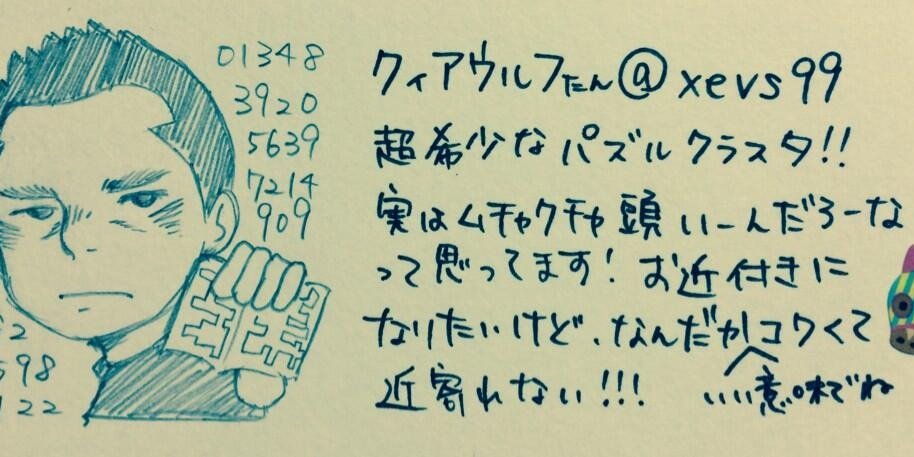 01348
3920
5639
7214
909
2
598
122
クィアウルフたん@xevs99
超希少なパズルクラスタ!!
実はムチャクチャ頭いーんだろーな
って思ってます!お近付きに
なりたいけど、なんだかコワくて
近寄れない!!!
いい意味でね